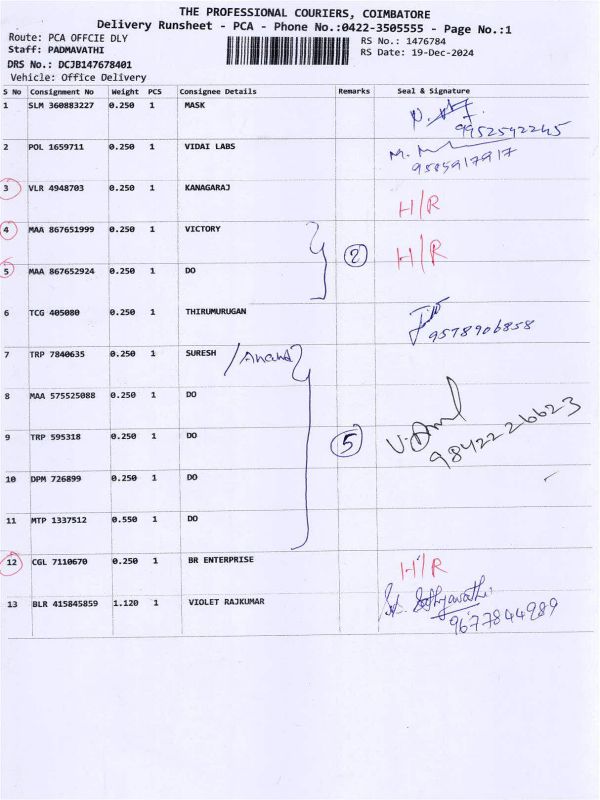 THE PROFESSIONAL COURIERS, COIMBATORE
Delivery Runsheet - PCA - Phone No.:0422-3505555 - Page No.:1
Route: PCA OFFCIE DLY
RS No.: 1476784
Staff: PADMAVATHI
RS Date: 19-Dec-2024
DRS No.: DCJB147678401
Vehicle: Office Delivery
S No Consignment No Weight PCS Consignee Details Remarks Seal & Signature
1 SLM 360883227 0.250 1 MASK
9952542245
2 POL 1659711 0.250 1 VIDAI LABS
9585917917
3 VLR 4948703 0.250 1 KANAGARAJ H/R
4 MAA 867651999 0.250 1 VICTORY H/R
2
5 MAA 867652924 0.250 1 DO
6 TCG 405080 0.250 1 THIRUMURUGAN
9578906858
7 TRP 7840635 0.250 1 SURESH /Anand
8 MAA 575525088 0.250 1 DO
9 TRP 595318 0.250 1 DO 5 9842226623
10 DPM 726899 0.250 1 DO
11 MTP 1337512 0.550 1 DO
12 CGL 7110670 0.250 1 BR ENTERPRISE H/R
13 BLR 415845859 1.120 1 VIOLET RAJKUMAR
9677844989